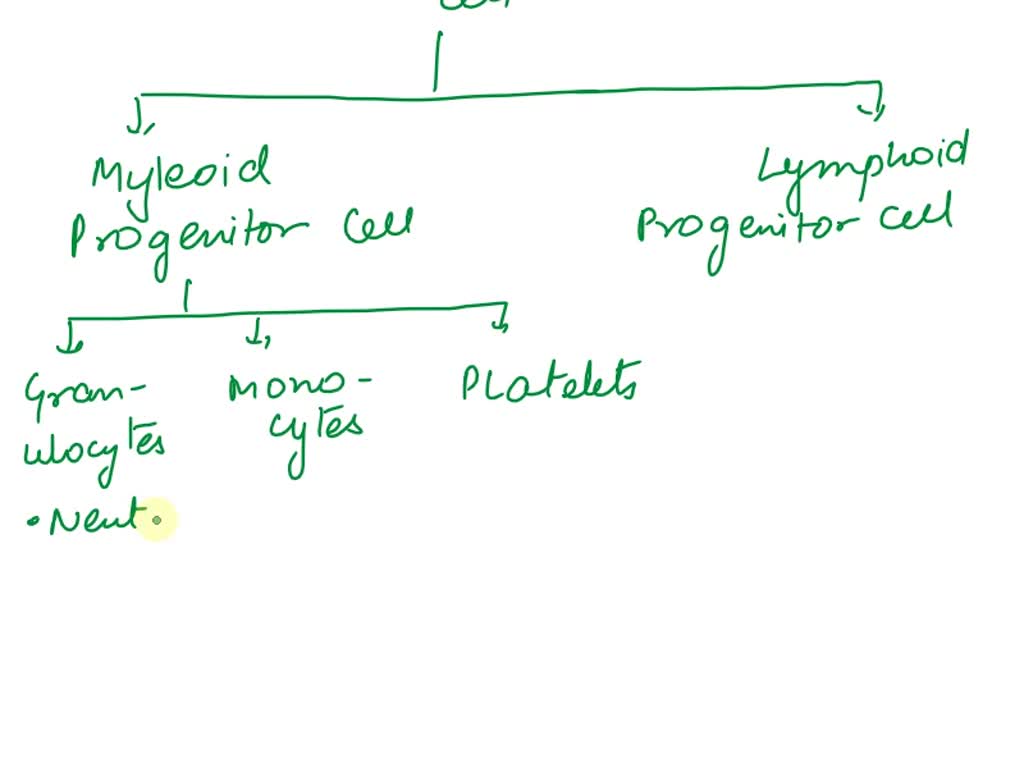 Myleoid
Progenitor Cell
Lymphoid
Progenitor cell
Gran-
ulocytes
Mono-
cytes
PLatelets
• Neut